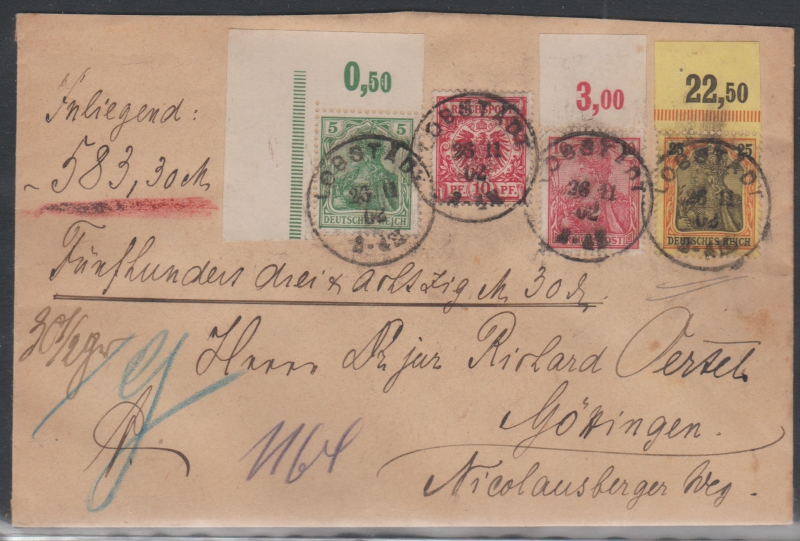 0,50
3,00
22,50
Inliegend:
5 5
REICHSPOST
25 25
583,30 M
LOBSTÄDT
26 11
02
LOBSTÄDT
26 11
02
LOBSTÄDT
26 11
02
LOBSTÄDT
02
PF. 10 PF.
DEUTSCHES REICH
REICHSPOST
DEUTSCHES REICH
Fünfhundert drei & achtzig M 30 d.
30 1/2 gr
Herrn Dr jur Richard Oertel
Göttingen.
1164
Nicolausberger Weg.